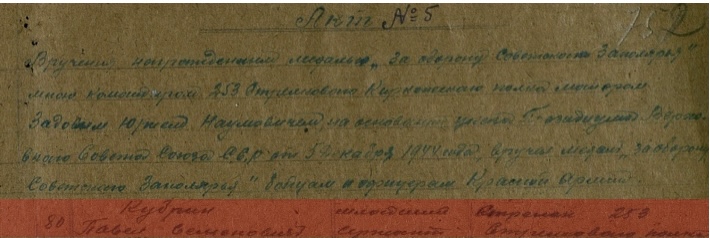 Акт №5
152
Вручения награжденным медалью "За оборону Советского Заполярья"
мною командиром 253 Стрелкового Киркенесского полка майором
Наумовичем на основании указа Президиума Верхо-
вного Совета Союза ССР от 5 декабря 1944 года, вручил медаль "За оборону
Советского Заполярья" бойцам и офицерам Красной Армии.
80 Кубрин младший Стрелок 253
Павел Семенович сержант Стрелкового полка